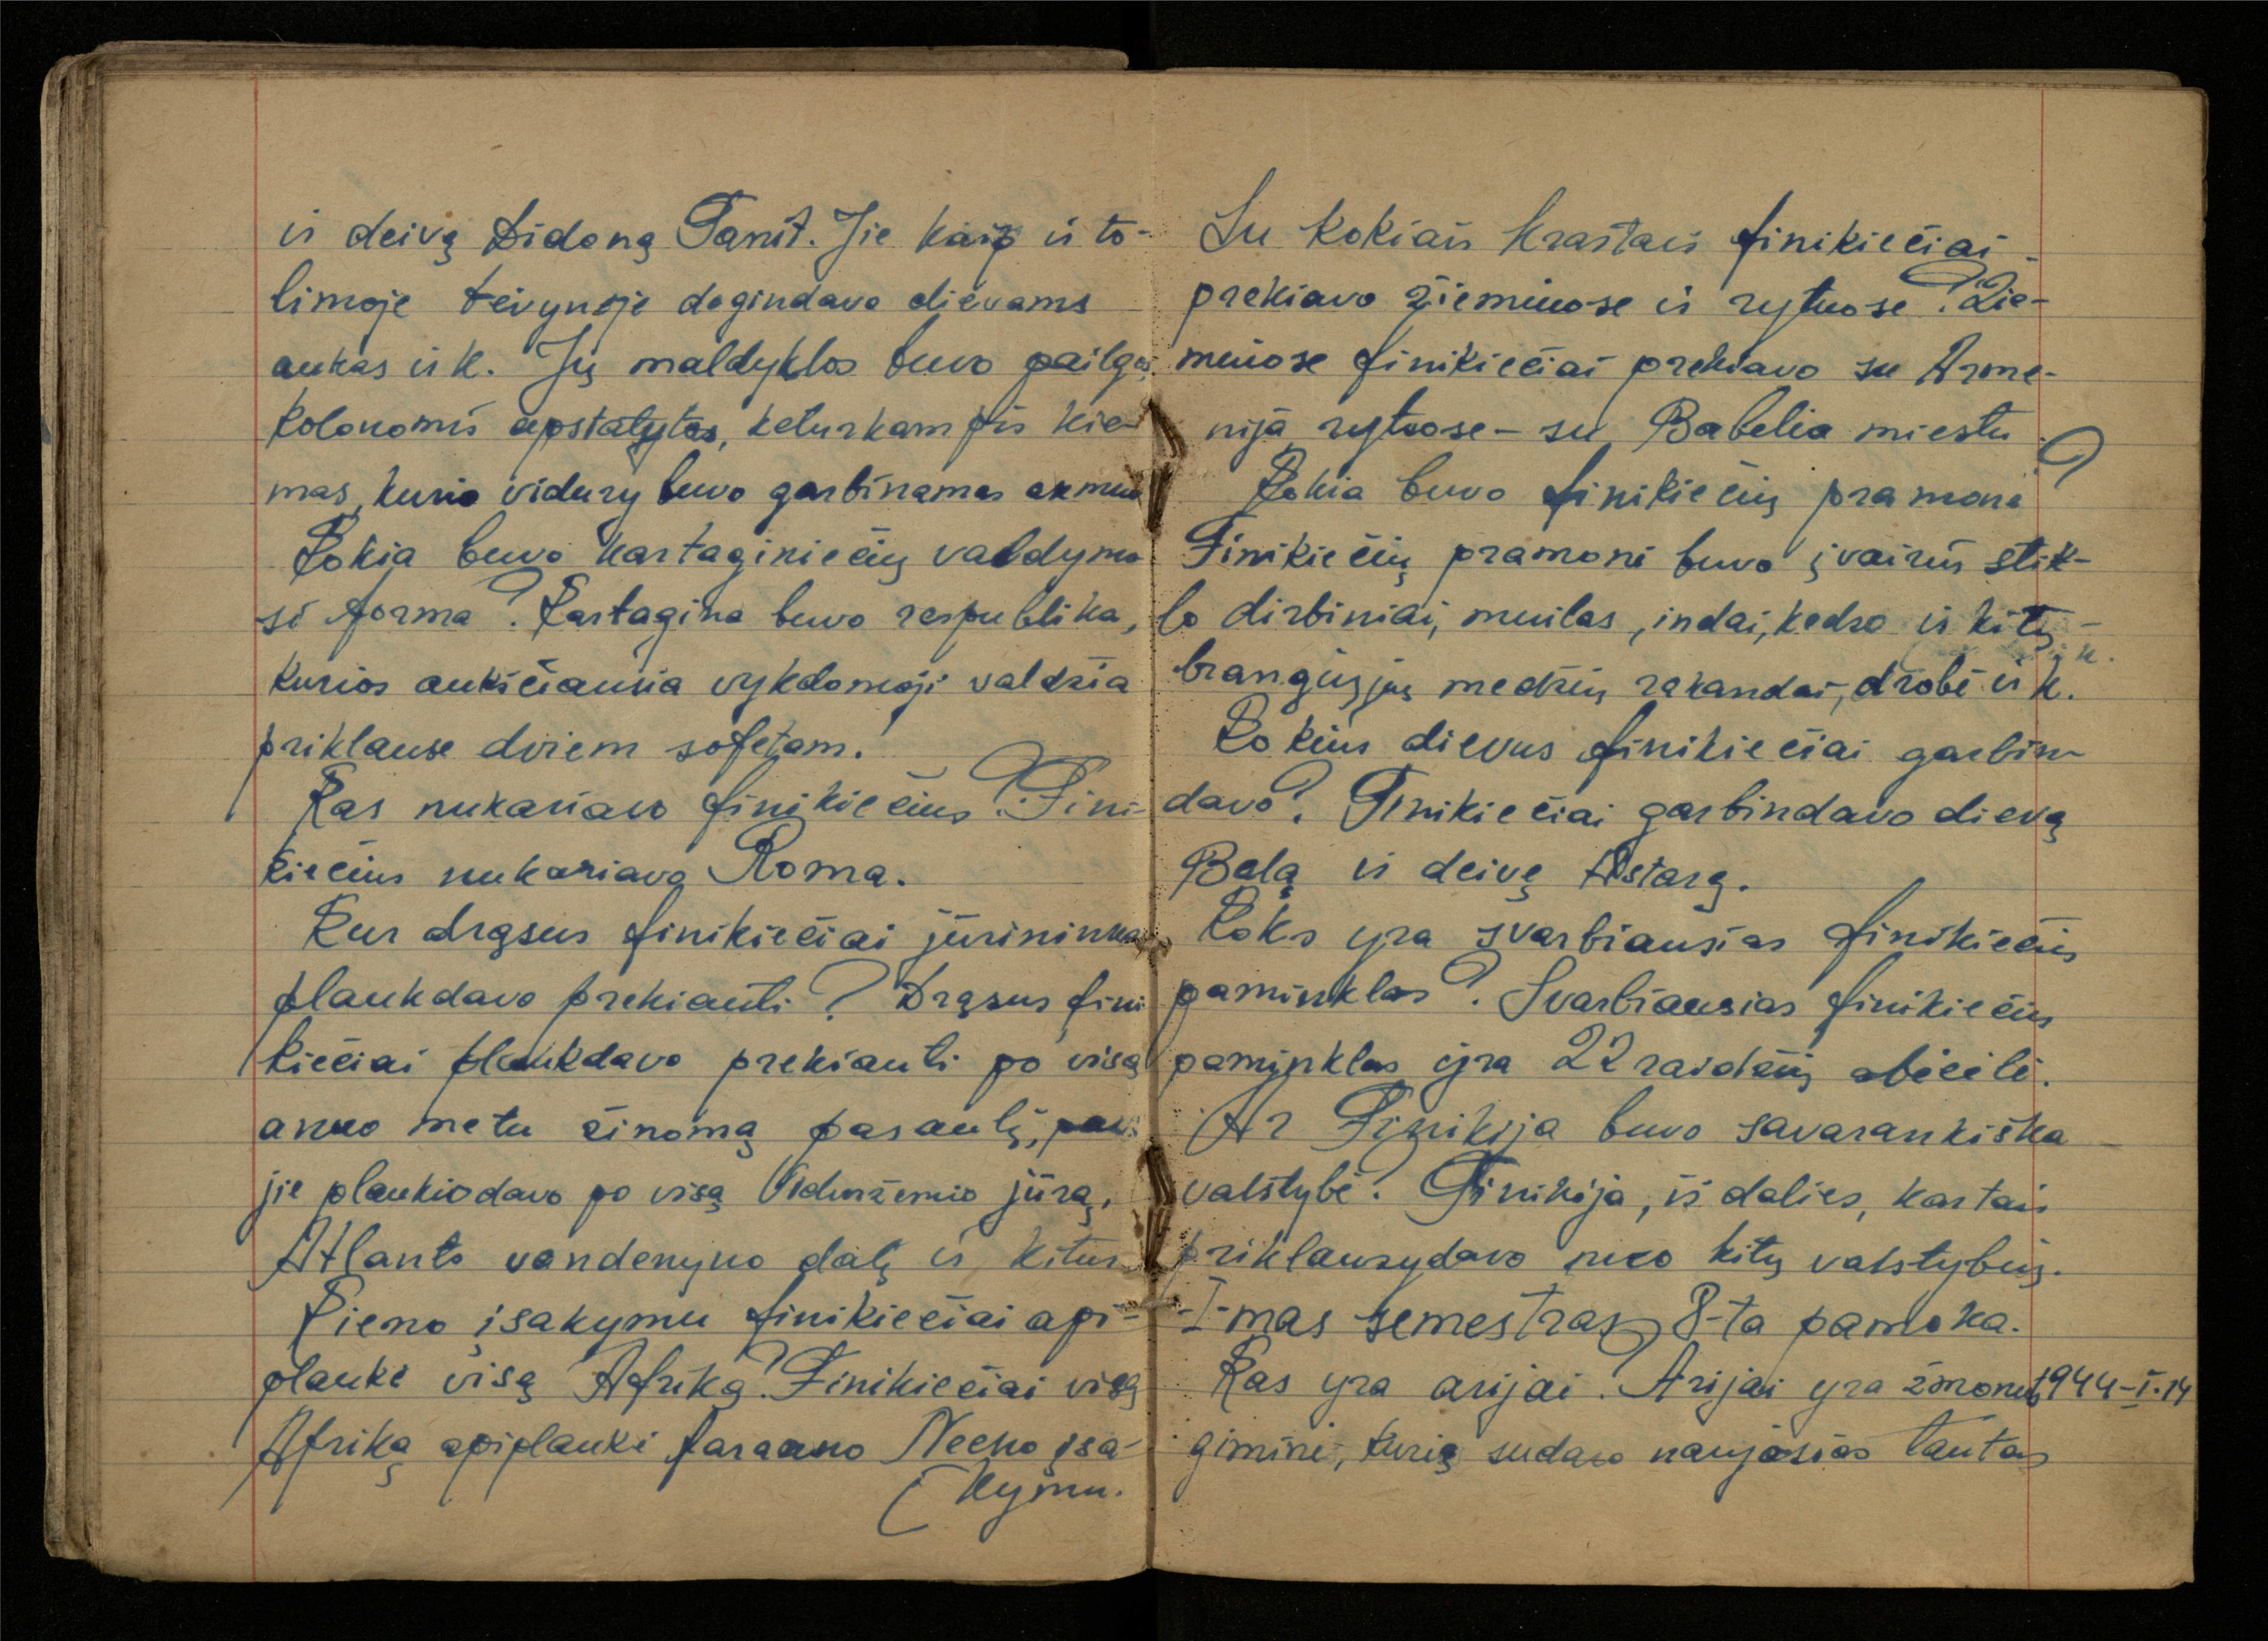 ir deivę Didoną Tanit. Jie kaip ir to-
limoje tėvynėje degindavo dievams
aukas ir k. Jų maldyklos buvo pailgos
kolonomis apstatytos, keturkampis kie-
mas, kurio vidury buvo garbinamas akmuo
Kokia buvo kartaginiečių valdymo
si forma? Kartagina buvo respublika,
kurios aukščiausia vykdomoji valdžia
priklausė dviem sofetam.
Kas nukariavo finikiečius? Fini-
kiečius nukariavo Roma.
Kur drąsus finikiečiai jūrininkai
plaukdavo prekiauti? Drąsus fini
kiečiai plaukdavo prekiauti po visą
anuo metu žinomą pasaulį,
jie plaukiodavo po visą Viduržemio jūrą,
Atlanto vandenyno dalį ir kitur
Kieno įsakymu finikiečiai api-
plaukė visą Afriką? Finikiečiai visą
Afriką apiplaukė faraono Necho įsa-
kymu.
Su kokiais kraštais finikiečiai
prekiavo žiemiuose ir rytuose? Žie-
miuose finikiečiai prekiavo su Arme-
nija rytuose - su Babelio miestu.
Kokia buvo finikiečių pramonė?
Finikiečių pramonė buvo įvairūs stik-
lo dirbiniai, muilas, indai, kedro ir kitų
brangiųjų medžių rakandai, drobė ir k.
Kokius dievus finikiečiai garbin
davo? Finikiečiai garbindavo dievą
Balą ir deivę Astarę.
Koks yra svarbiausias finikiečių
paminklas? Svarbiausias finikiečių
paminklas yra 22 raidžių abėcėlė.
Ar Finikija buvo savarankiška
valstybė? Finikija, iš dalies, kartais
priklausydavo nuo kitų valstybių.
I-mas semestras 8-ta pamoka.
Kas yra arijai? Arijai yra žmonių 1944-I-14
giminė, kurią sudaro naujosios tautos